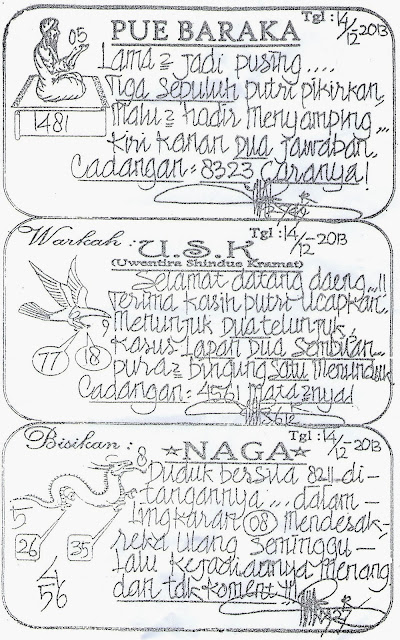 Tgl : 14/12-2013
05
PUE BARAKA
1481
Lama2 jadi pusing....
Tiga sepuluh putri pikirkan,
Malu2 hadir Menyamping,..
Kiri Kanan Dua jawaban..
Cadangan = 8323 Caranya!
Warkah :
Tgl : 14/12-2013
U.S.K
(Uwentira Shindue Kramat)
9
77
18
Selamat datang daeng..!!
Terima Kasih putri ucapkan,
Menunjuk Dua telunjuk,
Kasus Lapan Dua Sembilan...
pura2 Bingung satu Menunduk
Cadangan = 4561 Mata2nya!
Bisikan :
Tgl : 14/12-2013
8
NAGA
5
26
35
4
56
Duduk bersila 8211 di-
tangannya ... dalam -
Lingkaran 08 Mendesak -
reka ulang Seminggu -
Lalu Kejadiannya Menang
dan tdk Koment !!!